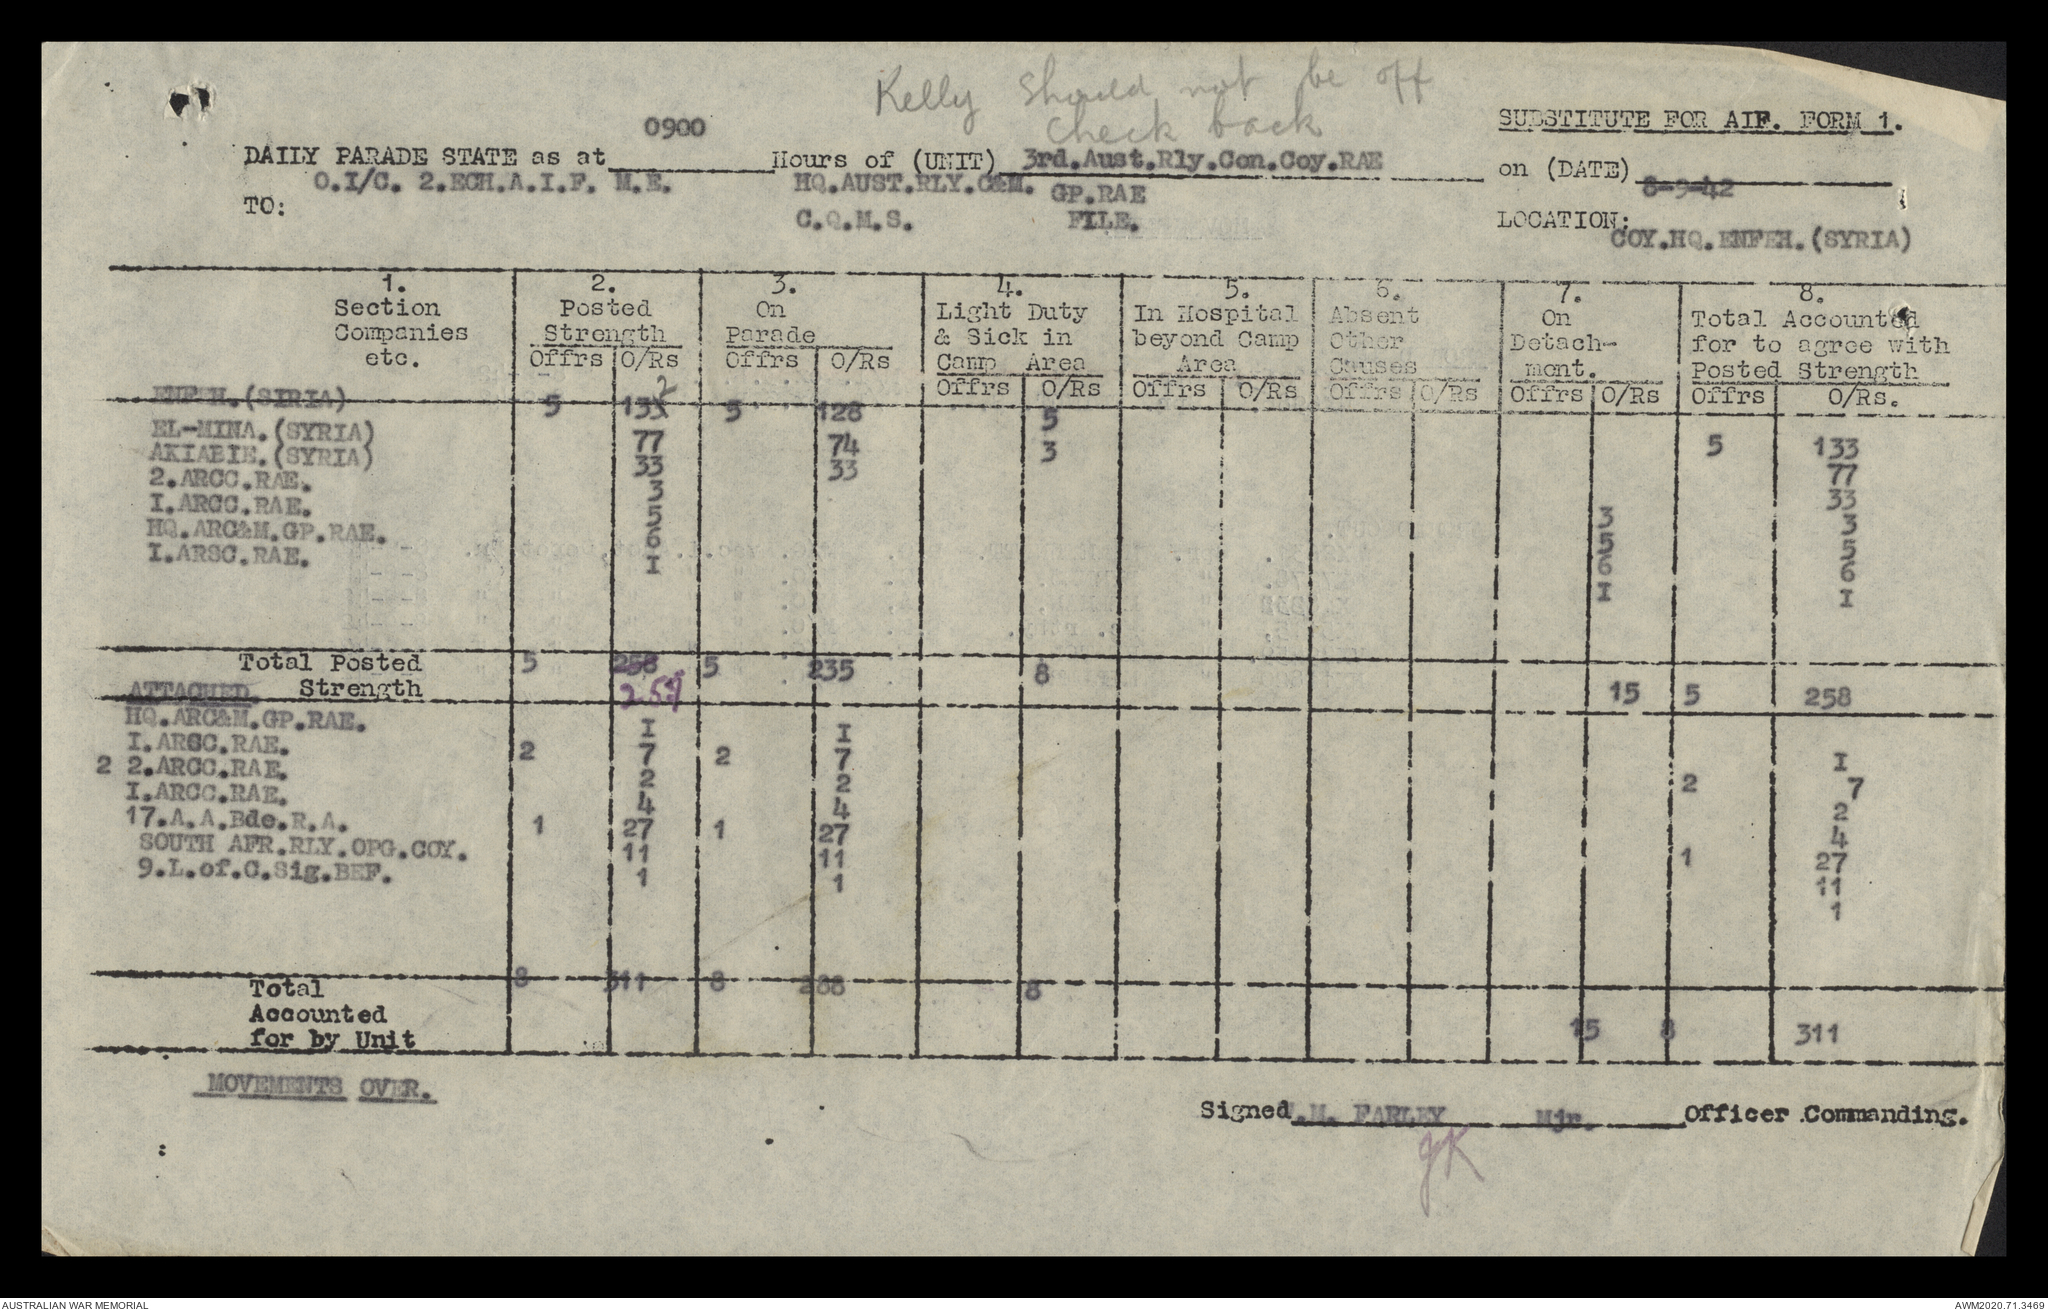 Kelly Should not be off
check back
SUBSTITUTE FOR AIF. FORM 1.
0900
DAILY PARADE STATE as at Hours of (UNIT) 3rd.Aust.Rly.Con.Coy.RAE on (DATE) 8-9-42
O.I/C. 2.ECH.A.I.F. M.E. HQ.AUST.RLY.C&M. GP.RAE
TO: C.Q.M.S. FILE. LOCATION: COY.HQ.ENFEH.(SYRIA)
1. 2. 3. 4. 5. 6. 7. 8.
Section Posted On Light Duty In Hospital Absent On Total Accounted
Companies Strength Parade & Sick in beyond Camp Other Detach- for to agree with
etc. Offrs O/Rs Offrs O/Rs Camp Area Area Causes ment. Posted Strength
Offrs O/Rs Offrs O/Rs Offrs O/Rs Offrs O/Rs Offrs O/Rs.
2
ENFEH.(SIRIA) 5 133 5 128 5 5 133
EL-MINA.(SYRIA) 77 74 3 77
AKIABIE.(SYRIA) 33 33 33
2.ARCC.RAE. 3 3 3
I.ARCC.RAE. 5 5 5
HQ.ARC&M.GP.RAE. 6 6 6
I.ARSC.RAE. I I I
Total Posted 5 258 5 235 8 15 5 258
ATTACHED. Strength 257
HQ.ARC&M.GP.RAE. I I I
I.ARSC.RAE. 2 7 2 7 2 7
2 2.ARCC.RAE. 2 2 2
I.ARCC.RAE. 4 4 4
17.A.A.Bde.R.A. 1 27 1 27 1 27
SOUTH AFR.RLY.OPG.COY. 11 11 11
9.L.of.C.Sig.BEF. 1 1 1
Total 8 311 8 288 8 15 8 311
Accounted
for by Unit
MOVEMENTS OVER.
Signed .M. FARLEY Mjr. Officer Commanding.
JK
AUSTRALIAN WAR MEMORIAL AWM2020.71.3469